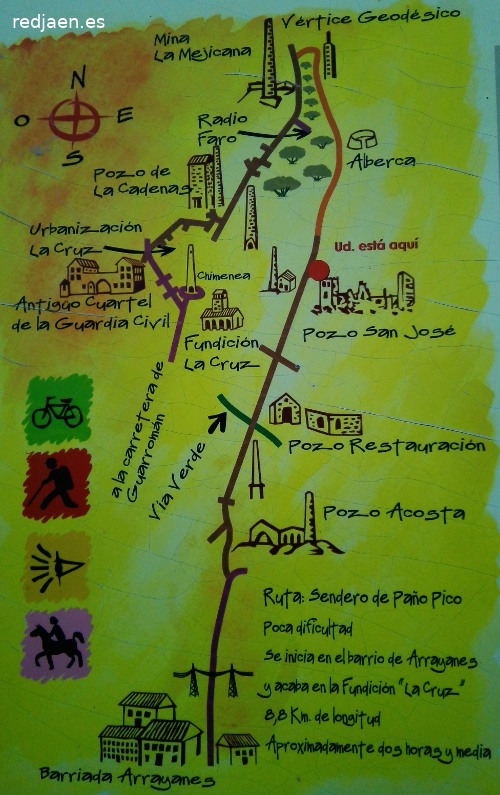 redjaen.es
Vértice Geodésico
Mina
La Mejicana
N
O
E
S
Radio
Faro
Alberca
Pozo de
La Cadenas
Urbanización
La Cruz
Ud. está aquí
Chimenea
Antigüo Cuartel
de la Guardia Civil
Pozo San José
Fundición
La Cruz
a la carretera de
Guarromán
Vía Verde
Pozo Restauración
Pozo Acosta
Ruta: Sendero de Paño Pico
Poca dificultad
Se inicia en el barrio de Arrayanes
y acaba en la Fundición "La Cruz"
8,8 Km. de longitud
Aproximadamente dos horas y media
Barriada Arrayanes